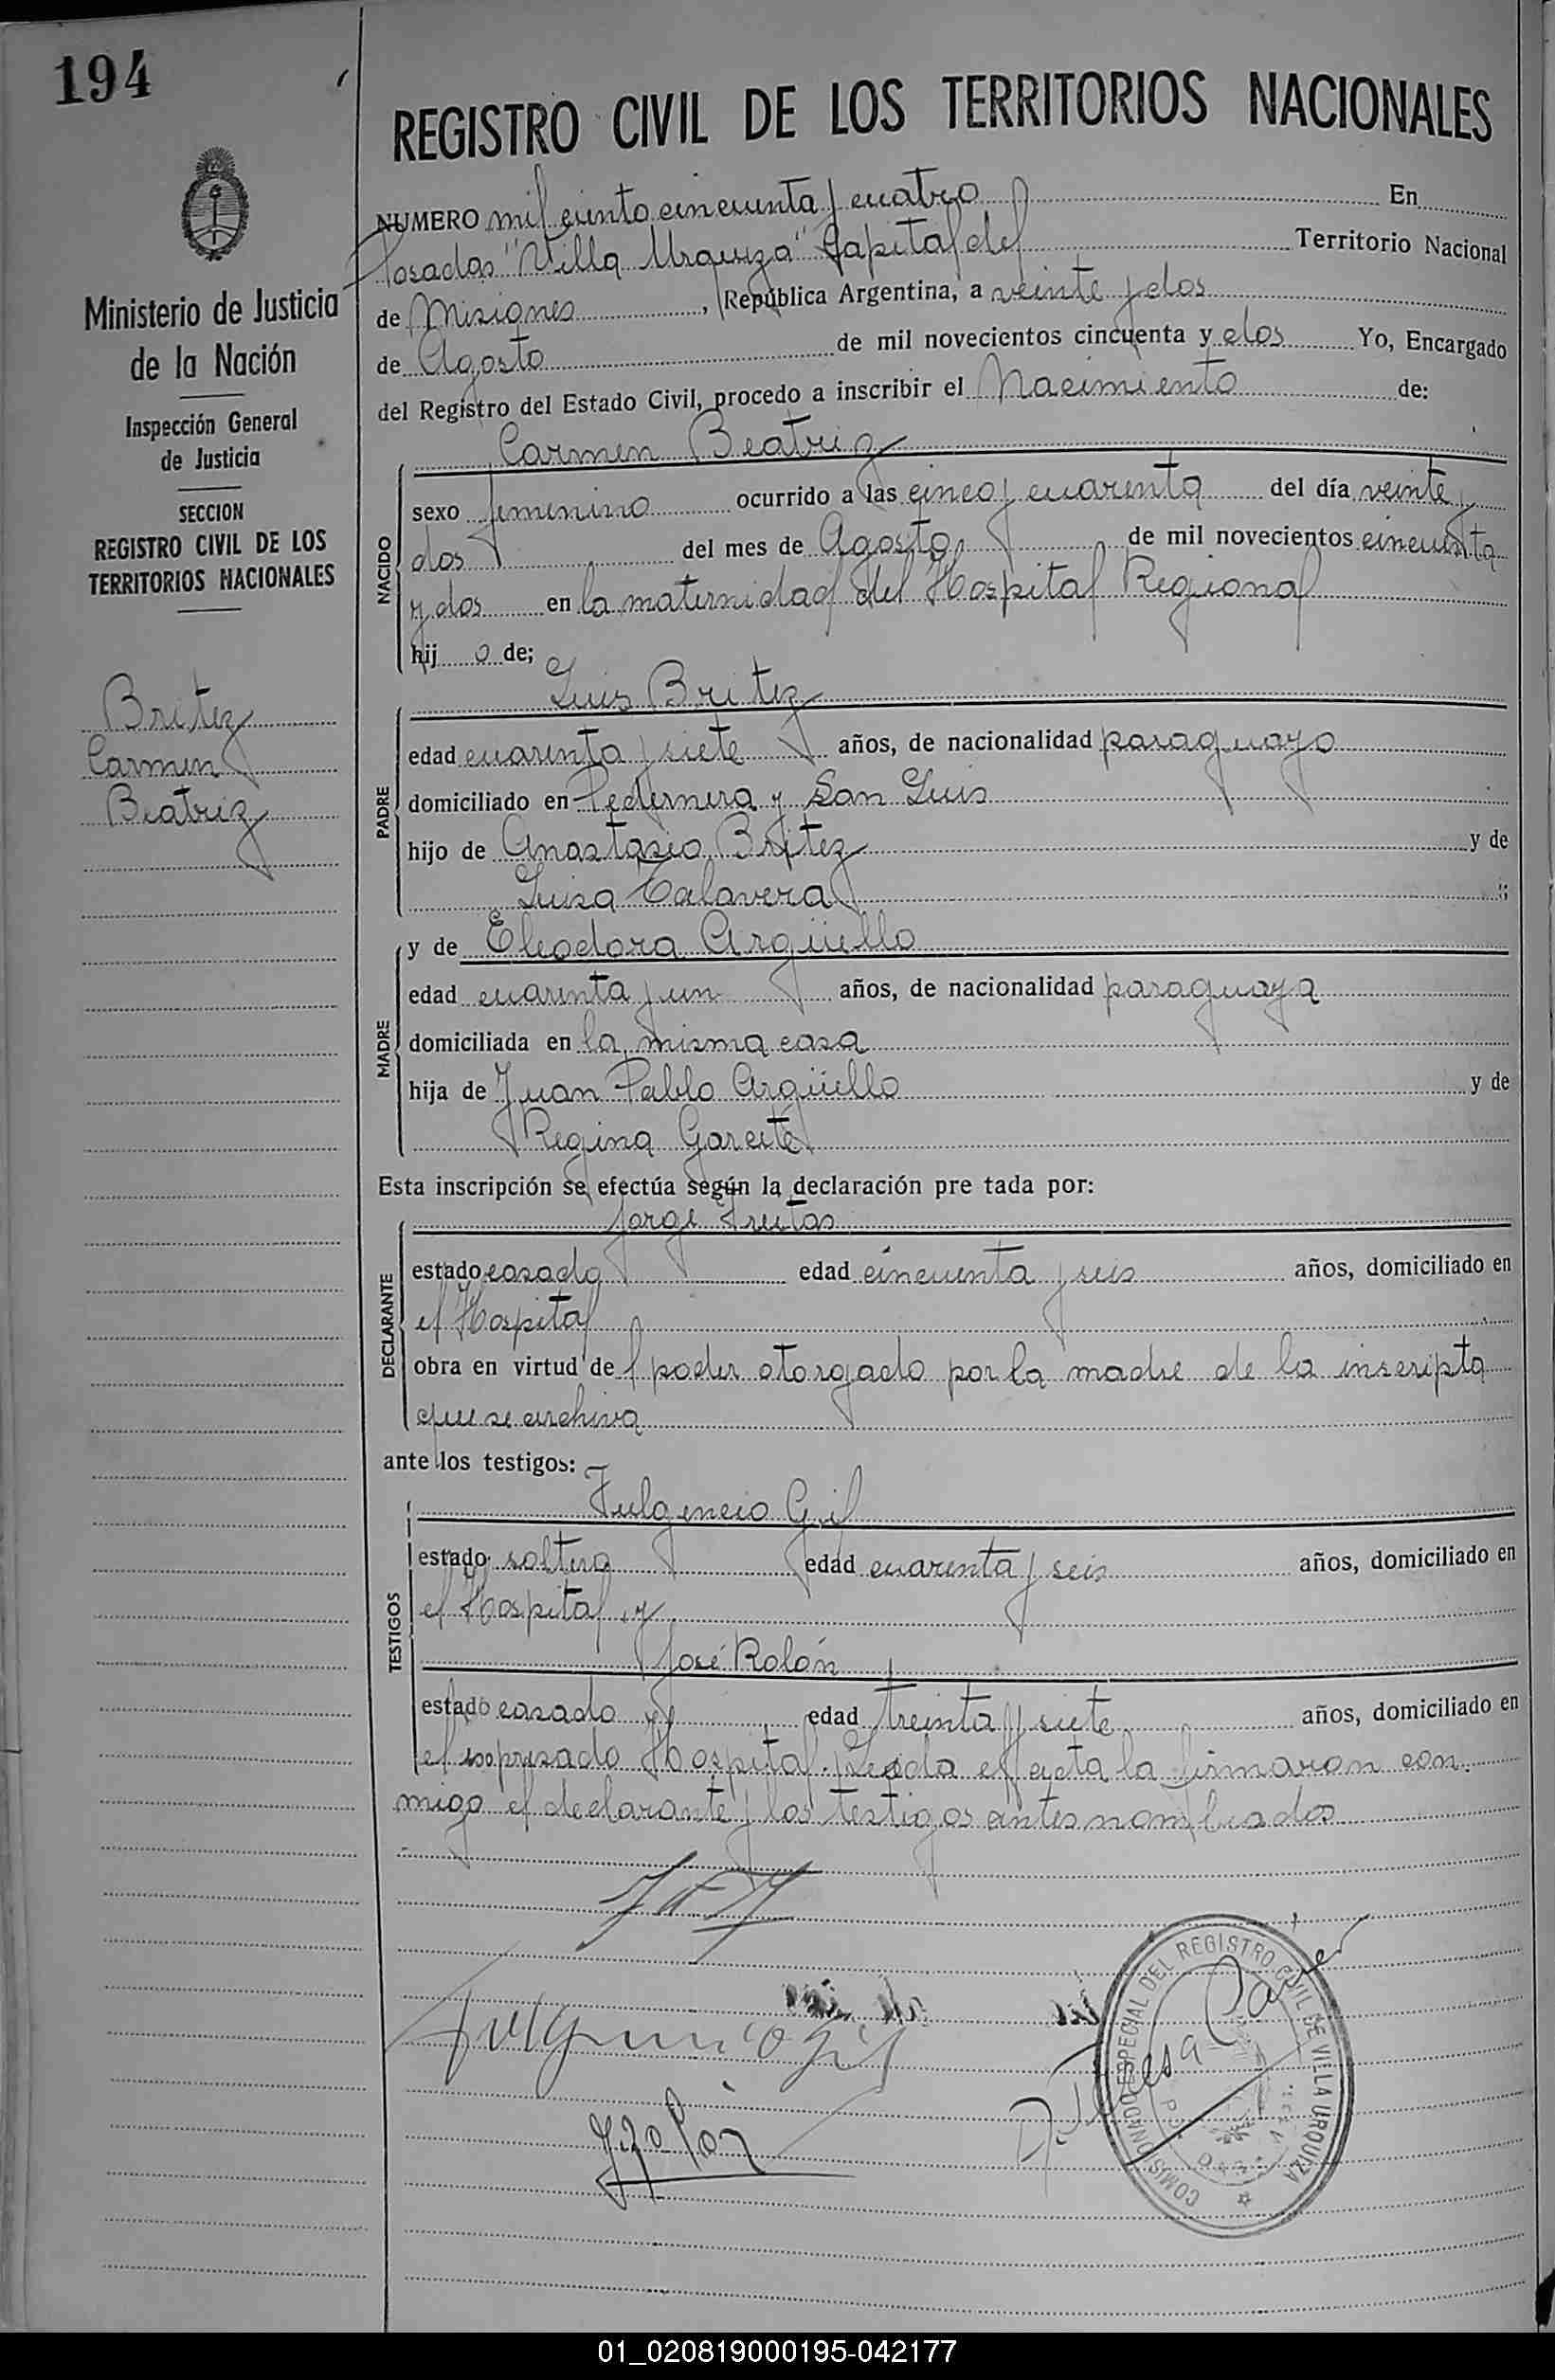 194
REGISTRO CIVIL DE LOS TERRITORIOS NACIONALES
Ministerio de Justicia
de la Nación
Inspección General
de Justicia
SECCION
REGISTRO CIVIL DE LOS
TERRITORIOS NACIONALES
Britez
Carmen
Beatriz
NUMERO mil ciento cincuenta y cuatro En
Posadas "Villa Urquiza" Capital del Territorio Nacional
de Misiones, República Argentina, a veinte y dos
de Agosto de mil novecientos cincuenta y dos Yo, Encargado
del Registro del Estado Civil, procedo a inscribir el Nacimiento de:
Carmen Beatriz
NACIDO
sexo femenino ocurrido a las cinco y cuarenta del día veinte y
dos del mes de Agosto de mil novecientos cincuenta
y dos en la maternidad del Hospital Regional
hij o de;
Luis Britez
PADRE
edad cuarenta y siete años, de nacionalidad paraguayo
domiciliado en Pedernera y San Luis
hijo de Anastasio Britez y de
Luisa Talavera
MADRE
y de Eleodora Argüello
edad cuarenta y un años, de nacionalidad paraguaya
domiciliada en la misma casa
hija de Juan Pablo Argüello y de
Regina Garcete
Esta inscripción se efectúa según la declaración pre tada por:
Jorge Freitas
DECLARANTE
estado casado edad cincuenta y seis años, domiciliado en
el Hospital
obra en virtud de l poder otorgado por la madre de la inscripta
que se archiva
ante los testigos:
Fulgencio Gil
TESTIGOS
estado soltero edad cuarenta y seis años, domiciliado en
el Hospital y
José Rolón
estado casado edad treinta y siete años, domiciliado en
el expresado Hospital. Leida el acta la firmaron con
migo el declarante y los testigos antes nombrados
Fulgencio Gil
J. Rolón
COMISIONADO ESPECIAL DEL REGISTRO CIVIL DE VILLA URQUIZA
01_020819000195-042177